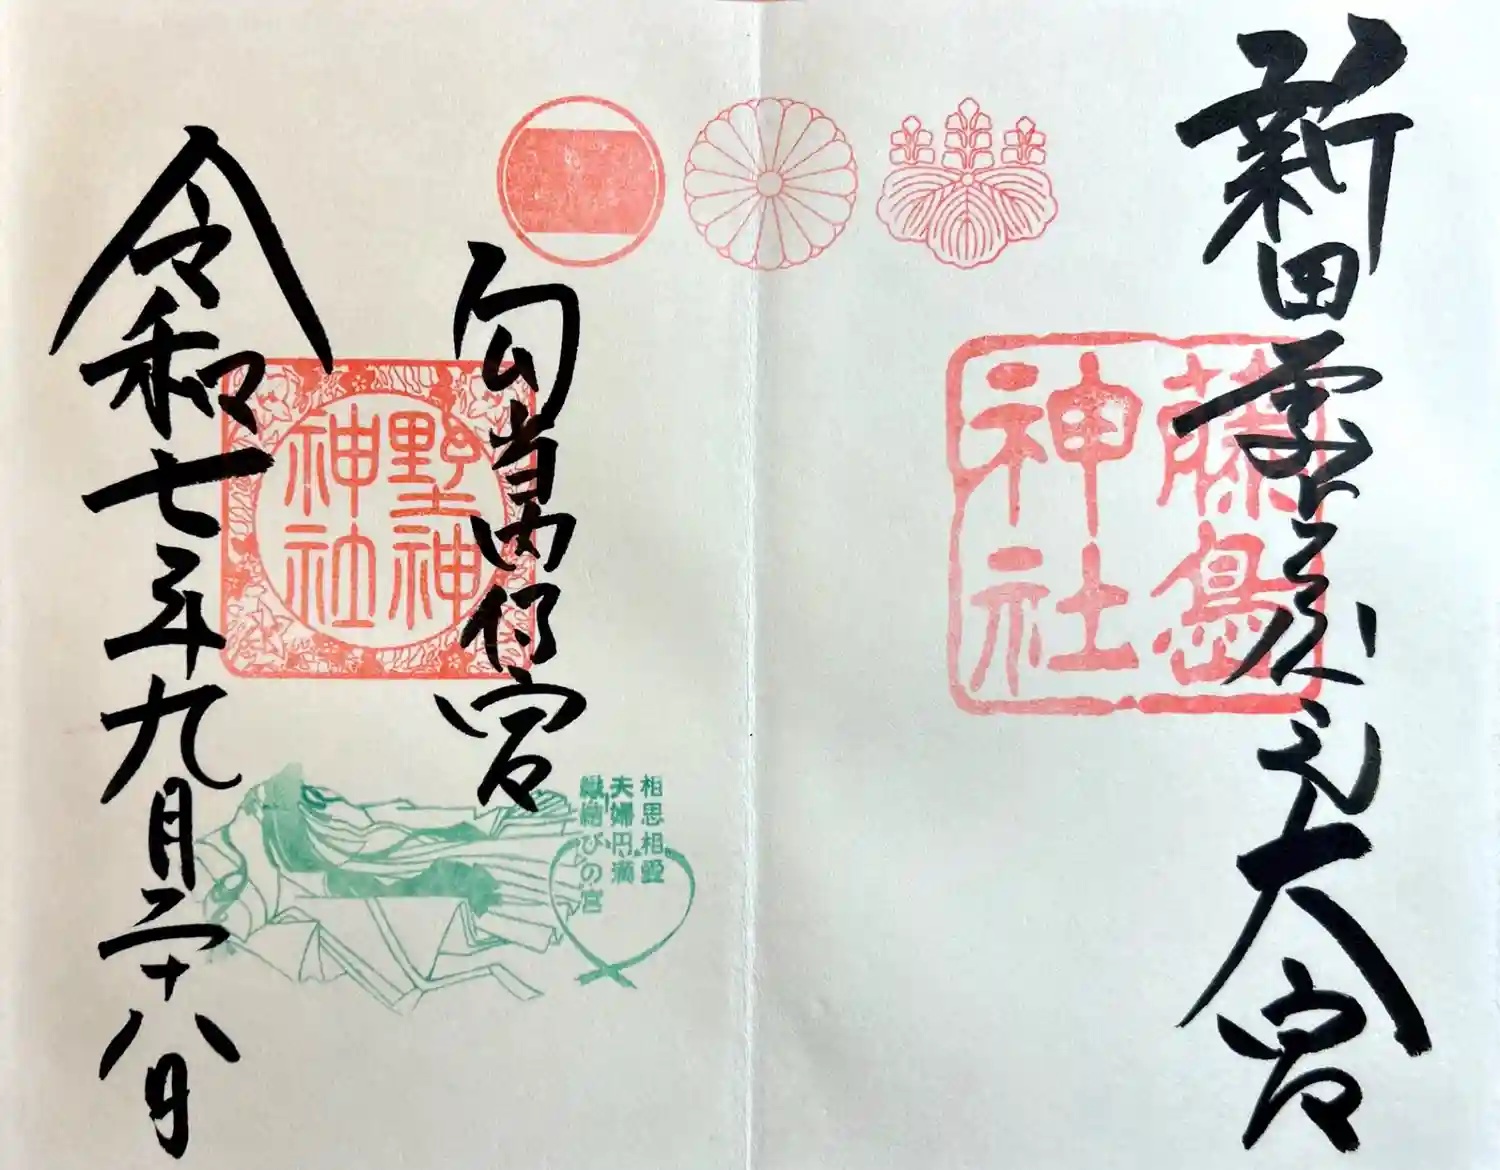 新田
大宮
藤島
神社
勾當内侍宮
野神
神社
相思相愛
夫婦円満
縁結びの宮
令和七年九月二十八日